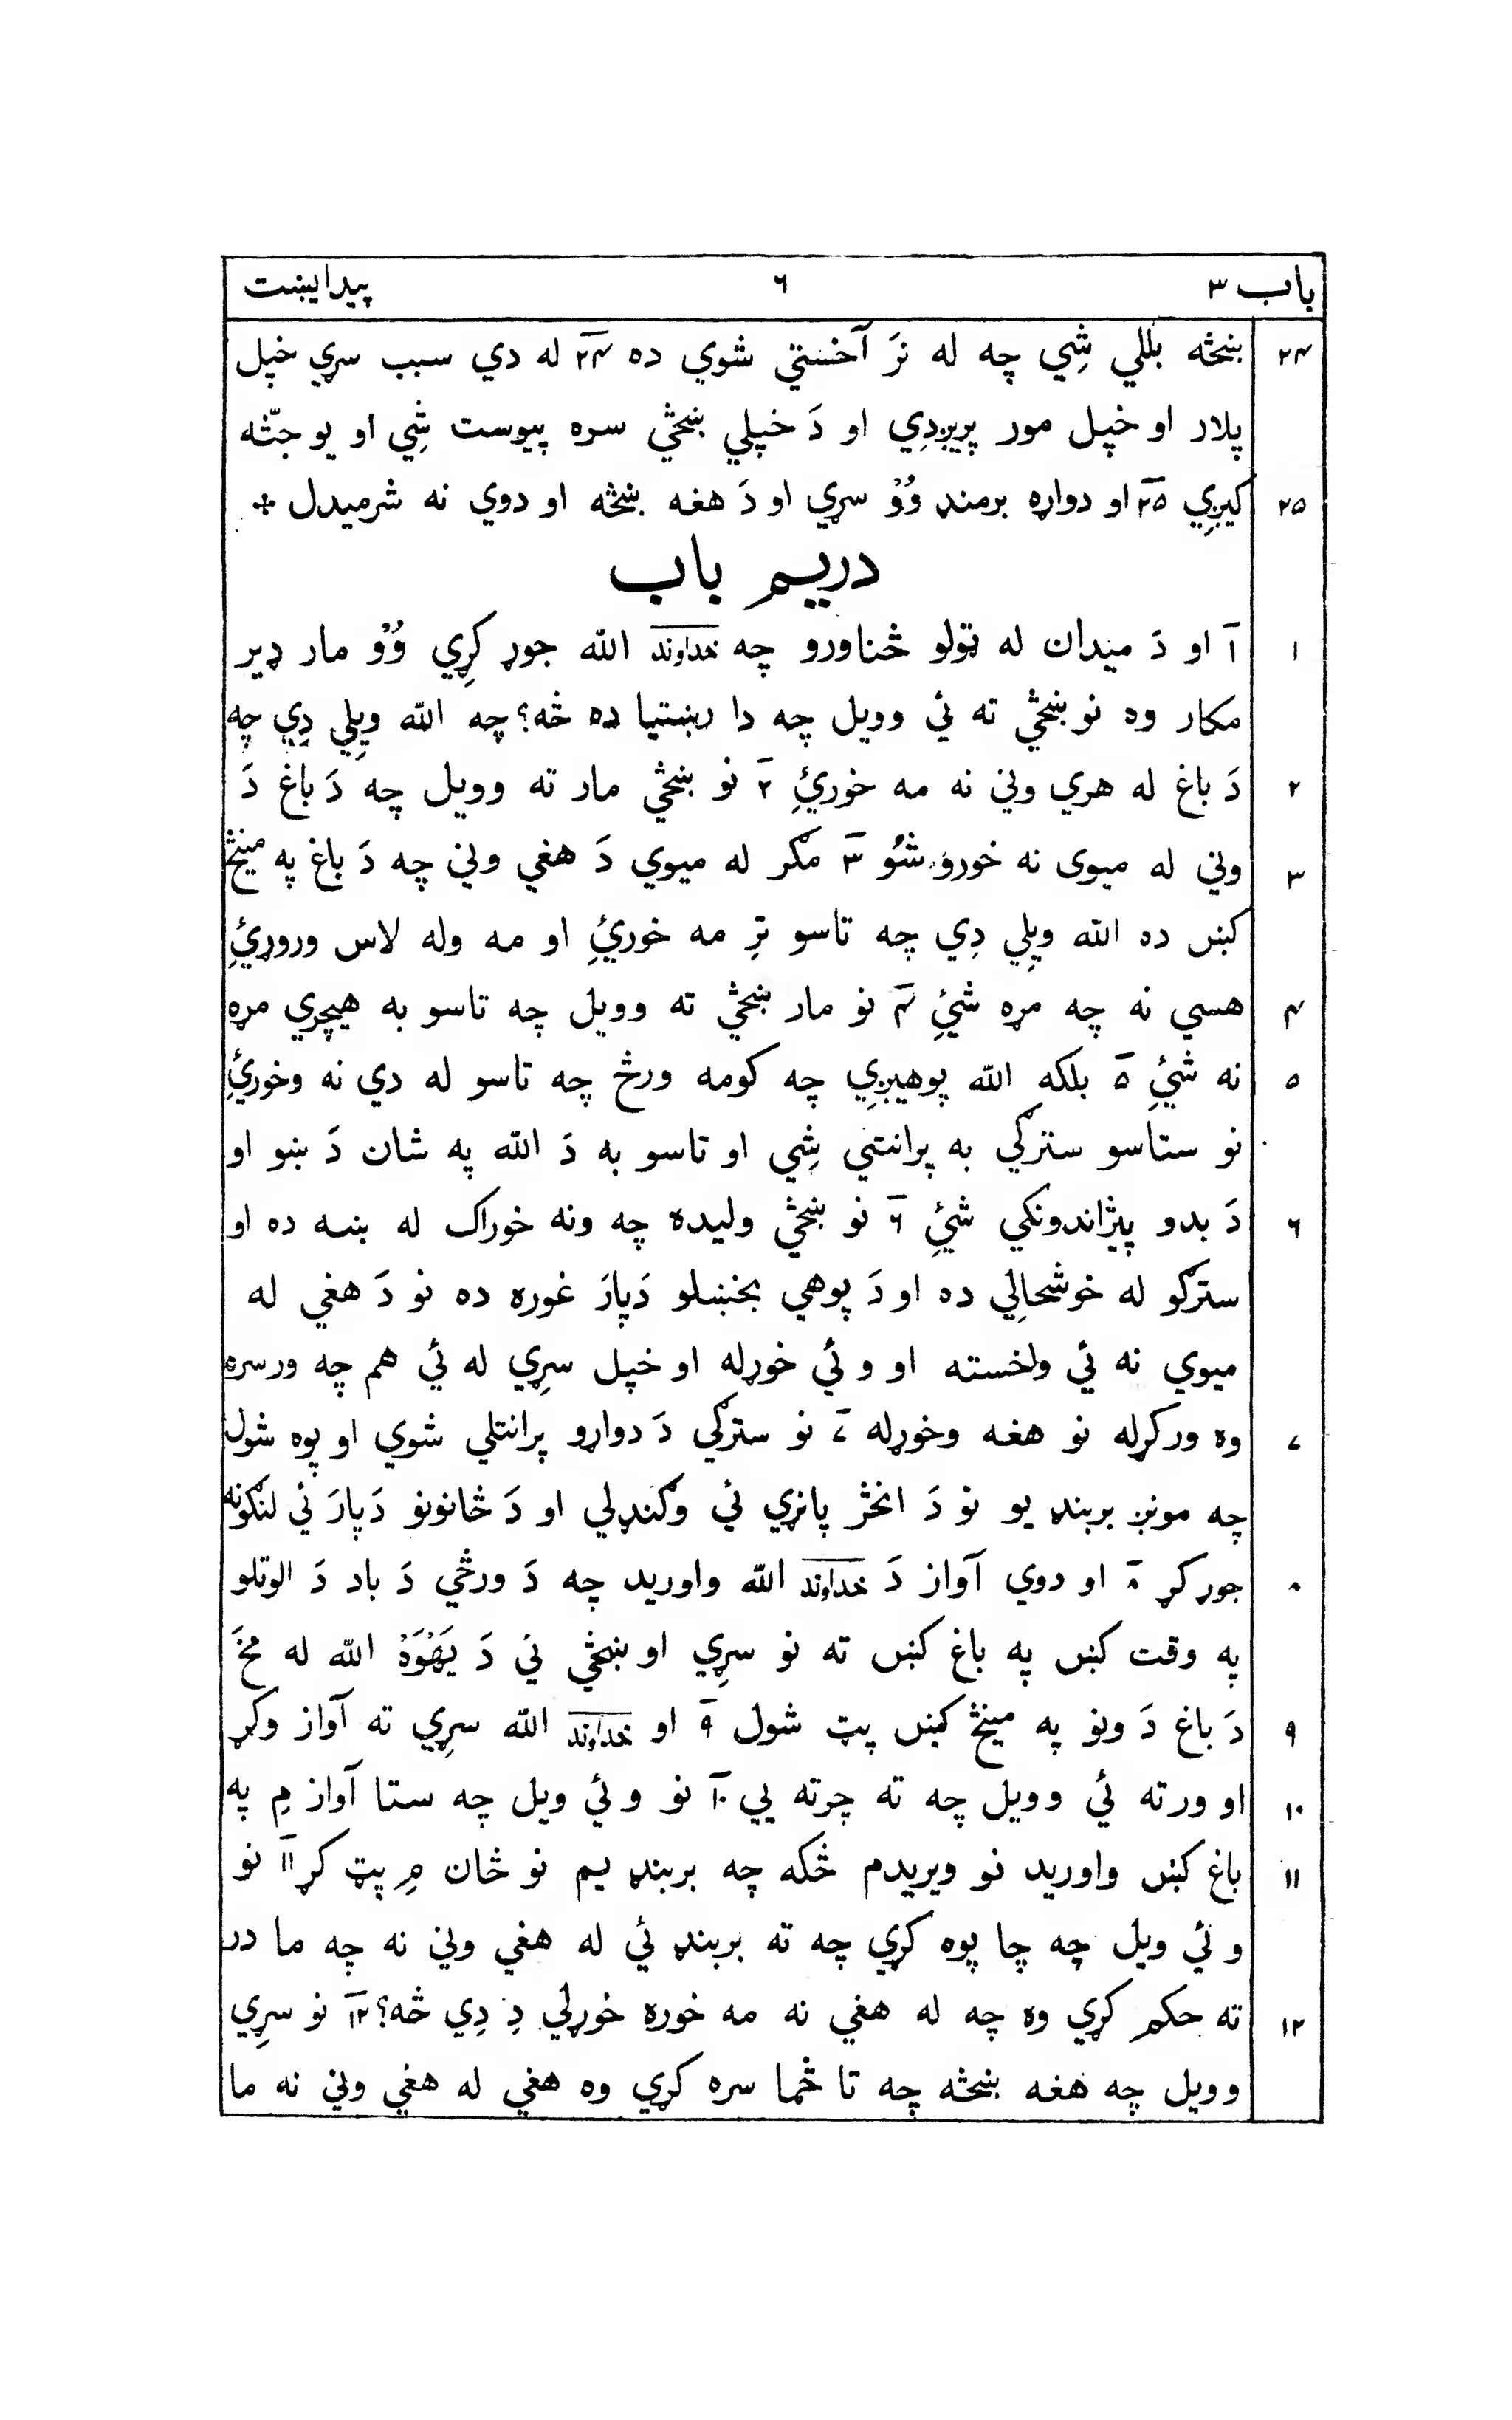 باب ۳ ۶ پیدایښت
۲۴ ښځه بللي شِي چه له نَرَ آخستي شوي ده ۲۴ له دي سبب سړي خپل
پلار او خپل مور پریږدِي او دَ خپلي ښځي سره پیوست شِي او یو جثّه
۲۵ کیږِي ۲۵ او دواړه برمنډ وُوْ سړي او دَ هغه ښځه او دوي نه شرمیدل *
دریم باب
۱ ۱ او دَ میدان له ټولو ځناورو چه خداوند الله جوړ کړِي وُوْ مار ډیر
مکار وه نو ښځي ته ئي وویل چه دا رښتیا ده څه؟ چه الله ویلِي دِي چه
۲ دَ باغ له هري وني نه مه خورئِ ۲ نو ښځي مار ته وویل چه دَ باغ دَ
۳ وني له میوی نه خورؤ شُو ۳ مګر له میوي دَ هغي وني چه دَ باغ په مینځ
کښ ده الله ویلِي دِي چه تاسو ترِ مه خورئِ او مه وله لاس وروړئِ
۴ هسي نه چه مړه شئِ ۴ نو مار ښځي ته وویل چه تاسو به هیچري مړه
۵ نه شئِ ۵ بلکه الله پوهیږِي چه کومه ورځ چه تاسو له دي نه وخورئِ
نو ستاسو سترګي به پرانتي شِي او تاسو به دَ الله په شان دَ ښو او
۶ دَ بدو پیژاندونکي شئِ ۶ نو ښځي ولیده چه ونه خوراک له ښه ده او
سترګو له خوشحالِي ده او دَ پوهي بخښلو دَپارَ غوره ده نو دَ هغي له
میوي نه ئي واخسته او و ئي خوړله او خپل سړِي له ئي هم چه ورسره
۷ وه ورکړله نو هغه وخوړله ۷ نو سترګي دَ دواړو پرانتلي شوي او پوه شول
چه مونږ بربنډ یو نو دَ انځر پانړي ئي وګنډلي او دَ ځانونو دَپارَ ئي لنګونه
۸ جوړ کړ ۸ او دوي آواز دَ خداوند الله واورید چه دَ ورځي دَ باد دَ الوتلو
په وقت کښ په باغ کښ ته نو سړِي او ښځي ئي دَ یَهْوَهْ الله له مخَ
۹ دَ باغ دَ ونو په مینځ کښ پټ شول ۹ او خداوند الله سړِي ته آواز وکړ
۱۰ او ورته ئي وویل چه ته چرته یي ۱۰ نو و ئي ویل چه ستا آواز مِ په
۱۱ باغ کښ واورید نو ویریدم ځکه چه بربنډ یم نو ځان مِ پټ کړ ۱۱ نو
و ئي ویل چه چا پوه کړي چه ته بربنډ ئي له هغي وني نه چه ما در
۱۲ ته حکم کړي وه چه له هغي نه مه خوره خوړلي دِ دِي څه؟ ۱۲ نو سړِي
وویل چه هغه ښځه چه تا څما سره کړي وه هغي له هغي وني نه ما